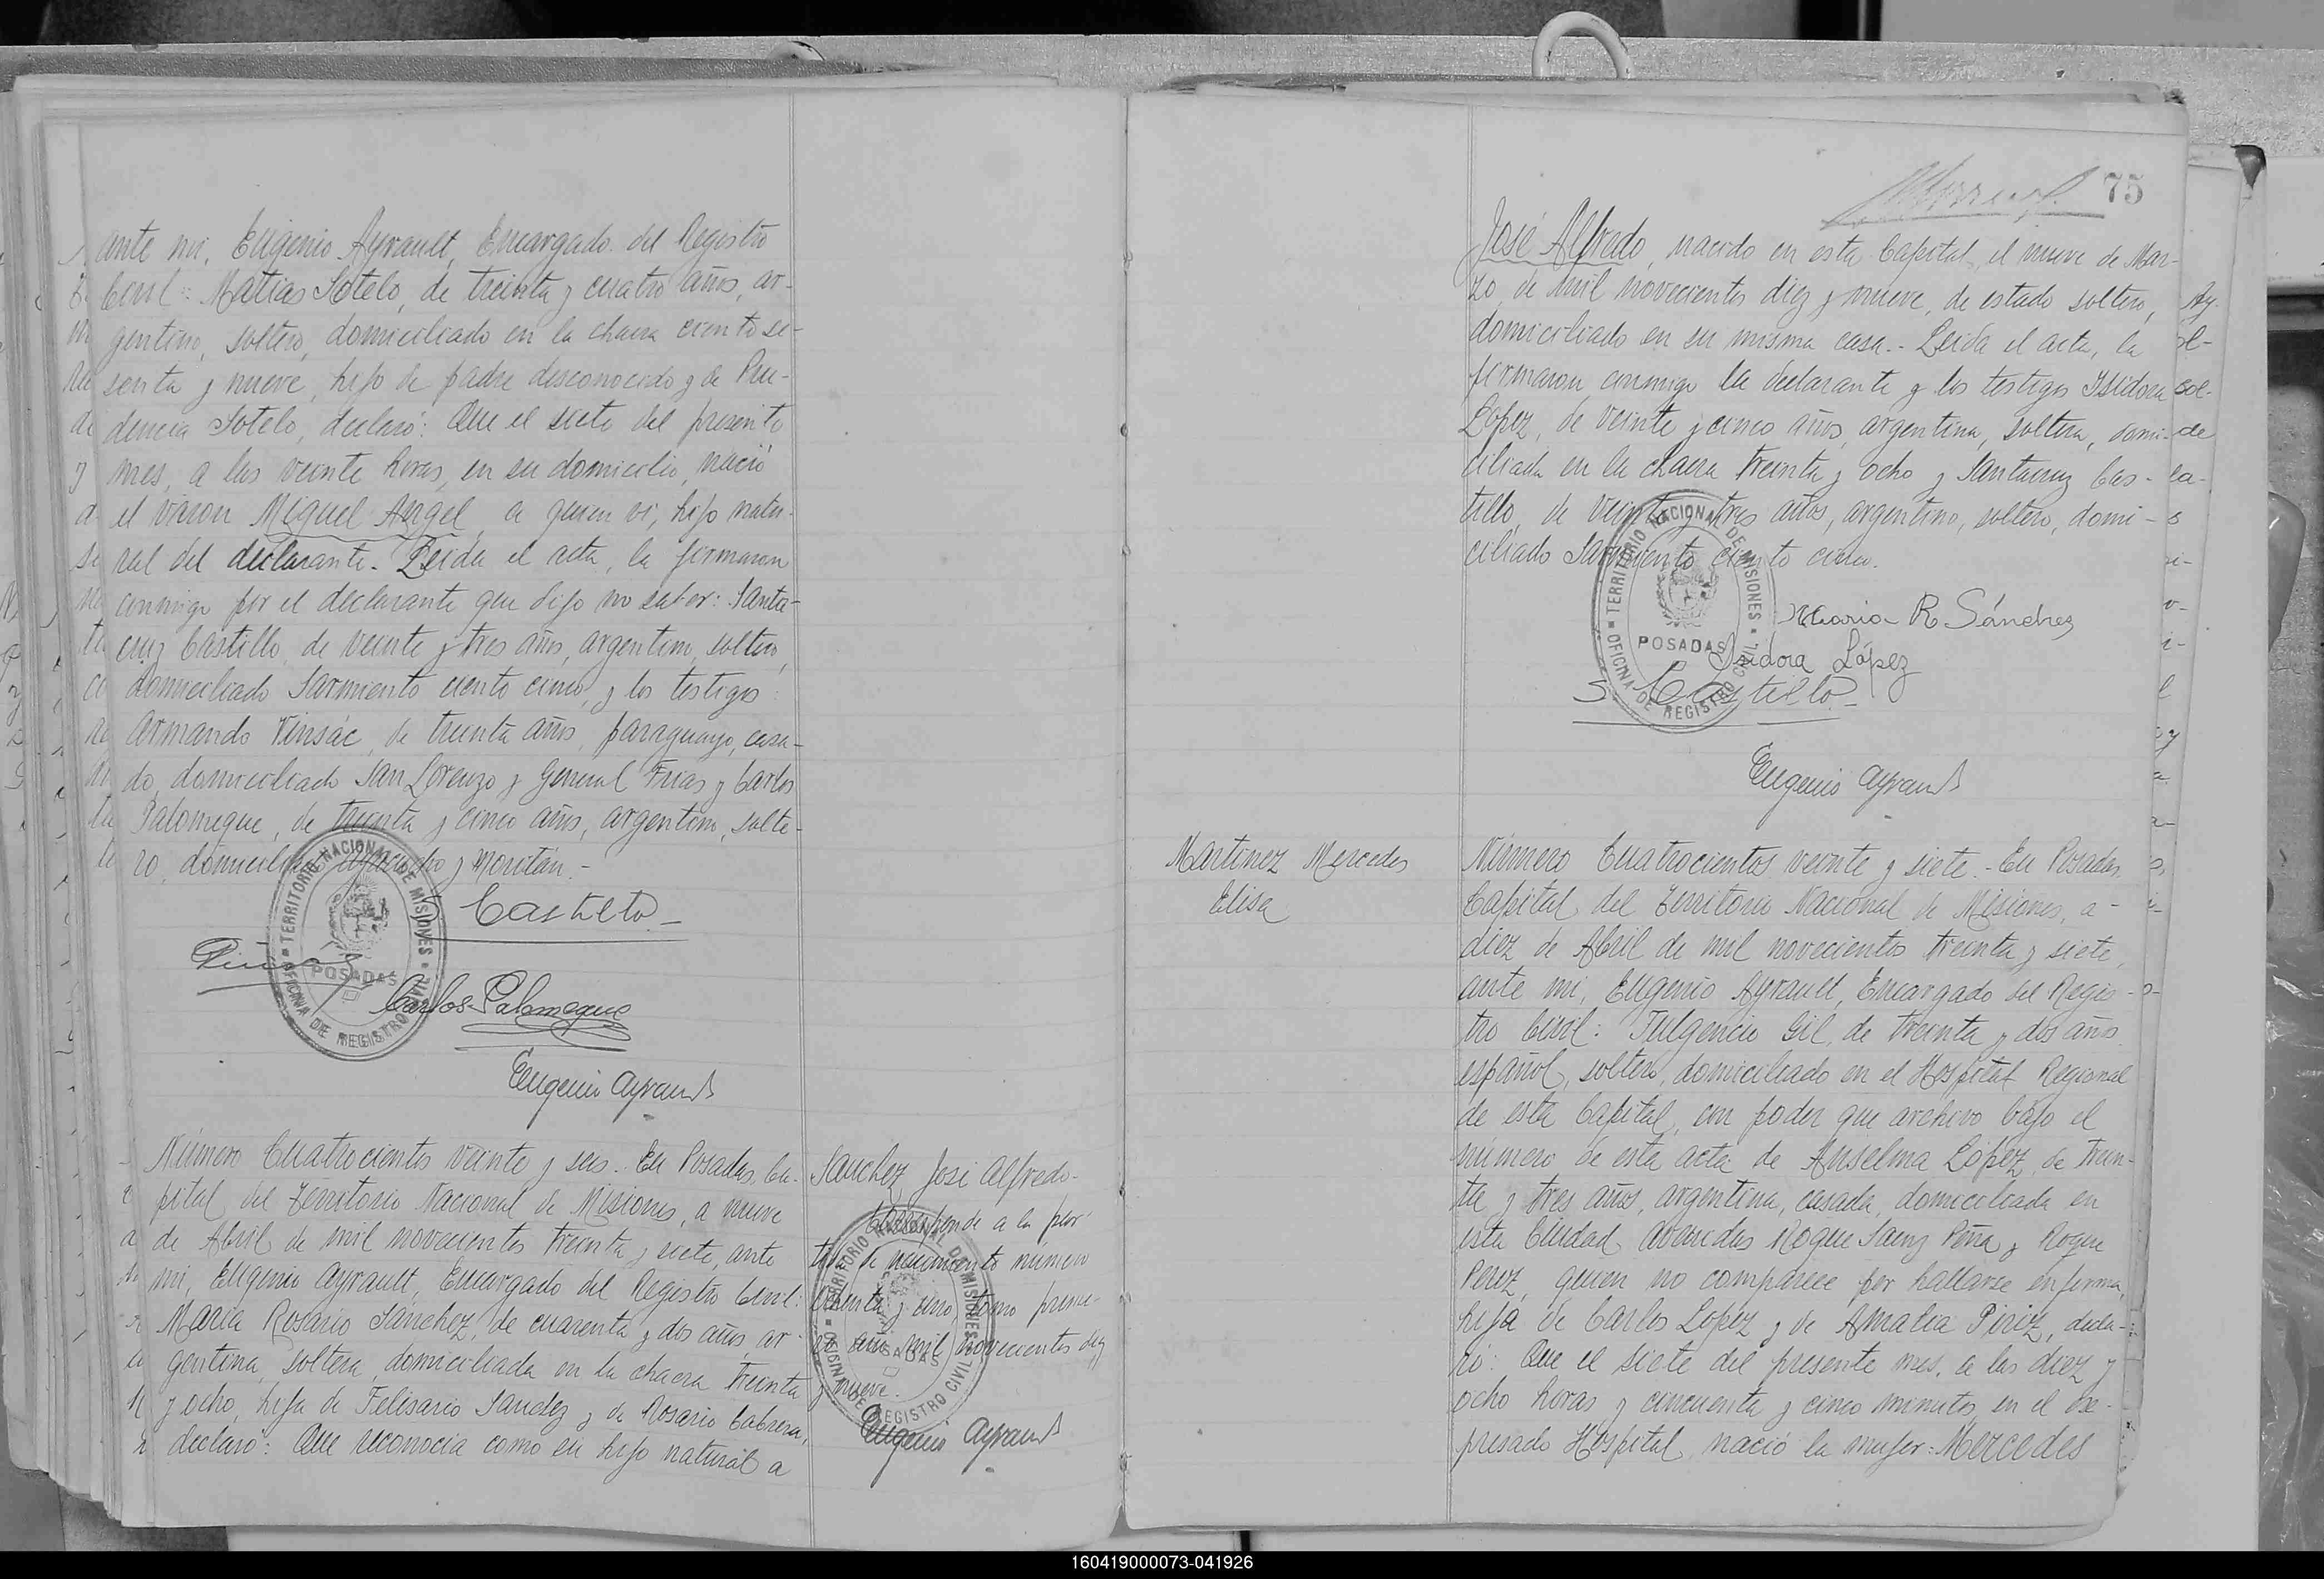 ante mi, Eugenio Ayrault, Encargado del Registro
Civil: Matias Sotelo, de treinta y cuatro años, ar-
gentino, soltero, domiciliado en la chacra ciento se-
senta y nueve, hijo de padre desconocido y de Pru-
dencia Sotelo, declaró: Que el siete del presente
mes, a las veinte horas, en su domicilio, nació
el varon Miguel Angel, a quien vi, hijo natu-
ral del declarante. Leida el acta, la firmaron
conmigo por el declarante que dijo no saber: Santa-
cruz Castillo, de veinte y tres años, argentino, soltero,
domiciliado Sarmiento ciento cinco, y los testigos:
Armando Vinsác, de treinta años, paraguayo, casa-
do, domiciliado San Lorenzo y General Frias y Carlos
Palomeque, de treinta y cinco años, argentino, solte-
ro, domiciliado Ayacucho y Moritán.-
S Castillo
Carlos Palomeque
Eugenio Ayrault
TERRITORIO NACIONAL DE MISIONES
POSADAS
OFICINA DE REGISTRO CIVIL
Número Cuatrocientos veinte y seis. En Posadas, Ca-
pital del Territorio Nacional de Misiones, a nueve
de Abril de mil novecientos treinta y siete, ante
mi, Eugenio Ayrault, Encargado del Registro Civil:
Maria Rosario Sánchez, de cuarenta y dos años, ar-
gentina, soltera, domiciliada en la chacra treinta
y ocho, hija de Felisario Sanchez y de Rosario Cabrera,
declaró: Que reconocia como su hijo natural a
Sanchez José Alfredo.
Corresponde a la par-
tida de nacimiento numero
treinta y uno, tomo prime-
ro año mil novecientos diez
y nueve.
Eugenio Ayrault
TERRITORIO NACIONAL DE MISIONES
POSADAS
OFICINA DE REGISTRO CIVIL
75
José Alfredo, nacido en esta Capital, el nueve de Mar-
zo de mil novecientos diez y nueve, de estado soltero,
domiciliado en su misma casa.- Leida el acta, la
firmaron conmigo la declarante y los testigos Isidora
López, de veinte y cinco años, argentina, soltera, domi-
ciliada en la chacra treinta y ocho y Santacruz Cas-
tillo, de veinte y tres años, argentino, soltero, domi-
ciliado Sarmiento ciento cinco.
Maria R Sánchez
Isidora López
S Castillo
Eugenio Ayrault
TERRITORIO NACIONAL DE MISIONES
POSADAS
OFICINA DE REGISTRO CIVIL
Martinez Mercedes
Elisa
Número Cuatrocientos veinte y siete.- En Posadas,
Capital del Territorio Nacional de Misiones, a
diez de Abril de mil novecientos treinta y siete,
ante mi, Eugenio Ayrault, Encargado del Regis-
tro Civil: Fulgencio Gil, de treinta y dos años,
español, soltero, domiciliado en el Hospital Regional
de esta Capital, con poder que archivo bajo el
número de esta acta de Anselma López, de trein-
ta y tres años, argentina, casada, domiciliada en
esta Ciudad Avenidas Roque Saenz Peña y Roque
Perez, quien no comparece por hallarse enferma,
hija de Carlos Lopez y de Amalia Piriz, decla-
ró: Que el siete del presente mes, a las diez y
ocho horas y cincuenta y cinco minutos, en el ex-
presado Hospital, nació la mujer: Mercedes
160419000073-041926